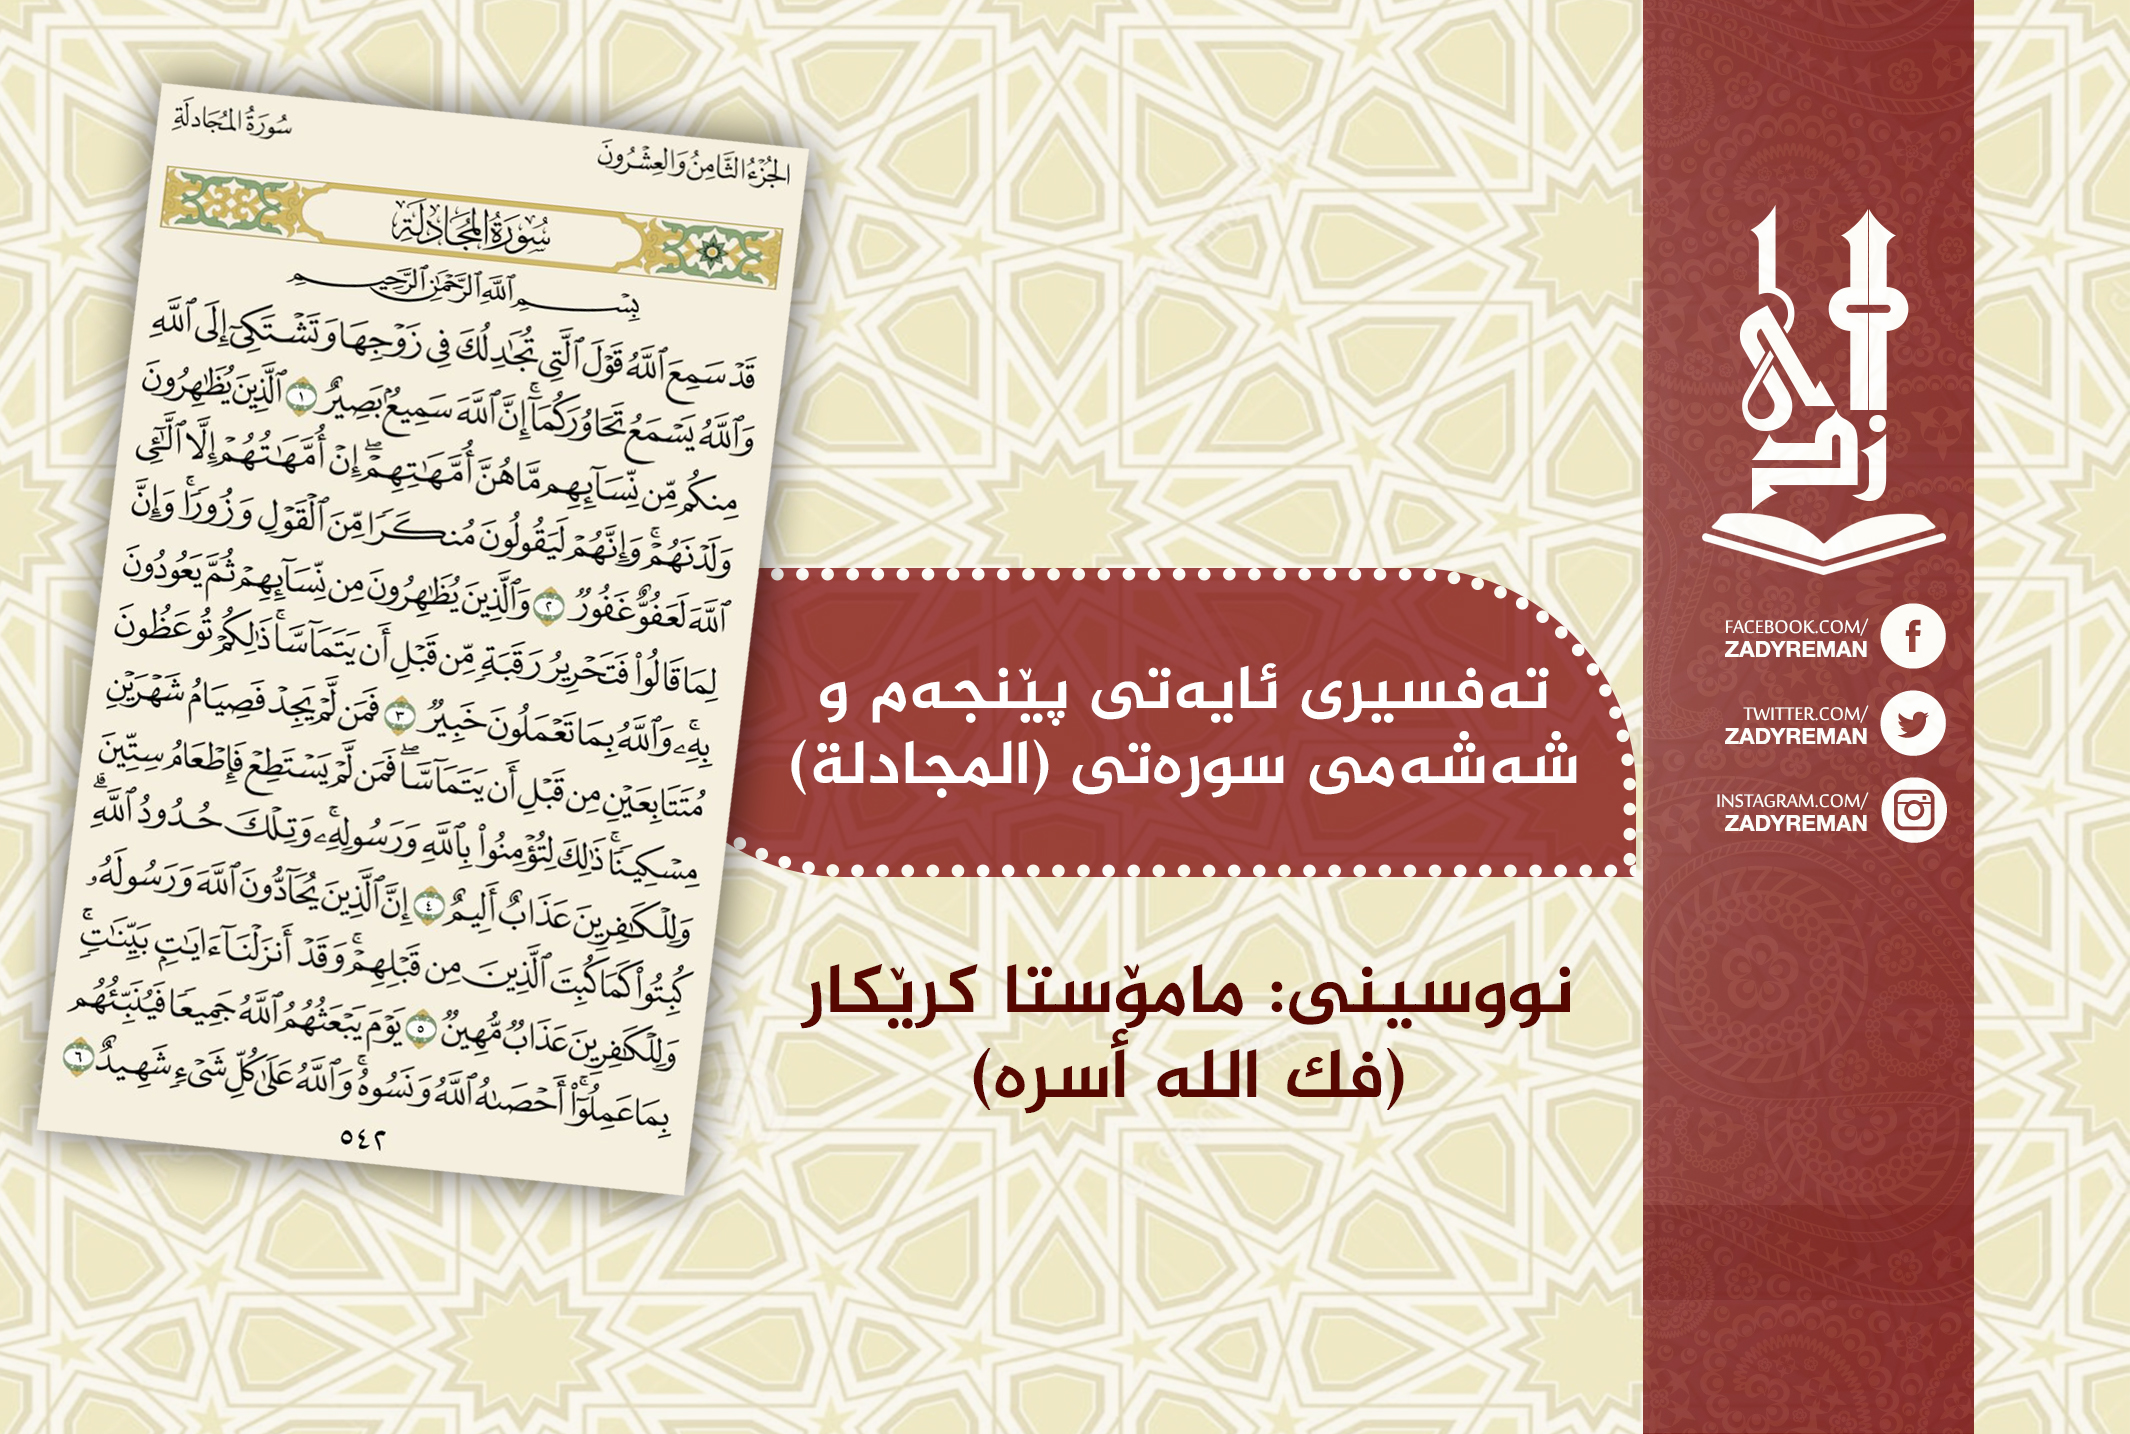 الجُزْءُ الثَّامِنُ وَالعِشْرُونَ
سُورَةُ المُجَادلَةِ
سُورَةُ المُجَادلَةِ
بِسْمِ ٱللَّهِ ٱلرَّحْمَٰنِ ٱلرَّحِيمِ
قَدْ سَمِعَ ٱللَّهُ قَوْلَ ٱلَّتِى تُجَٰدِلُكَ فِى زَوْجِهَا وَتَشْتَكِىٓ إِلَى ٱللَّهِ
وَٱللَّهُ يَسْمَعُ تَحَاوُرَكُمَآ ۚ إِنَّ ٱللَّهَ سَمِيعٌۢ بَصِيرٌ ١ ٱلَّذِينَ يُظَٰهِرُونَ
مِنكُم مِّن نِّسَآئِهِم مَّا هُنَّ أُمَّهَٰتِهِمْ ۖ إِنْ أُمَّهَٰتُهُمْ إِلَّا ٱلَّٰٓـِٔى
وَلَدْنَهُمْ ۚ وَإِنَّهُمْ لَيَقُولُونَ مُنكَرًا مِّنَ ٱلْقَوْلِ وَزُورًا ۚ وَإِنَّ
ٱللَّهَ لَعَفُوٌّ غَفُورٌ ٢ وَٱلَّذِينَ يُظَٰهِرُونَ مِن نِّسَآئِهِمْ ثُمَّ يَعُودُونَ
لِمَا قَالُوا۟ فَتَحْرِيرُ رَقَبَةٍ مِّن قَبْلِ أَن يَتَمَآسَّا ۚ ذَٰلِكُمْ تُوعَظُونَ
بِهِۦ ۚ وَٱللَّهُ بِمَا تَعْمَلُونَ خَبِيرٌ ٣ فَمَن لَّمْ يَجِدْ فَصِيَامُ شَهْرَيْنِ
مُتَتَابِعَيْنِ مِن قَبْلِ أَن يَتَمَآسَّا ۖ فَمَن لَّمْ يَسْتَطِعْ فَإِطْعَامُ سِتِّينَ
مِسْكِينًا ۚ ذَٰلِكَ لِتُؤْمِنُوا۟ بِٱللَّهِ وَرَسُولِهِۦ ۚ وَتِلْكَ حُدُودُ ٱللَّهِ ۗ
وَلِلْكَٰفِرِينَ عَذَابٌ أَلِيمٌ ٤ إِنَّ ٱلَّذِينَ يُحَآدُّونَ ٱللَّهَ وَرَسُولَهُۥ
كُبِتُوا۟ كَمَا كُبِتَ ٱلَّذِينَ مِن قَبْلِهِمْ ۚ وَقَدْ أَنزَلْنَآ ءَايَٰتٍۭ بَيِّنَٰتٍ ۚ
وَلِلْكَٰفِرِينَ عَذَابٌ مُّهِينٌ ٥ يَوْمَ يَبْعَثُهُمُ ٱللَّهُ جَمِيعًا فَيُنَبِّئُهُم
بِمَا عَمِلُوٓا۟ ۚ أَحْصَىٰهُ ٱللَّهُ وَنَسُوهُ ۚ وَٱللَّهُ عَلَىٰ كُلِّ شَىْءٍ شَهِيدٌ ٦
٥٤٢
تەفسیری ئایەتی پێنجەم و
شەشەمی سورەتی (المجادلة)
نووسینی: مامۆستا کرێکار
(فك الله أسره)
زادی
FACEBOOK.COM/
ZADYREMAN
TWITTER.COM/
ZADYREMAN
INSTAGRAM.COM/
ZADYREMAN